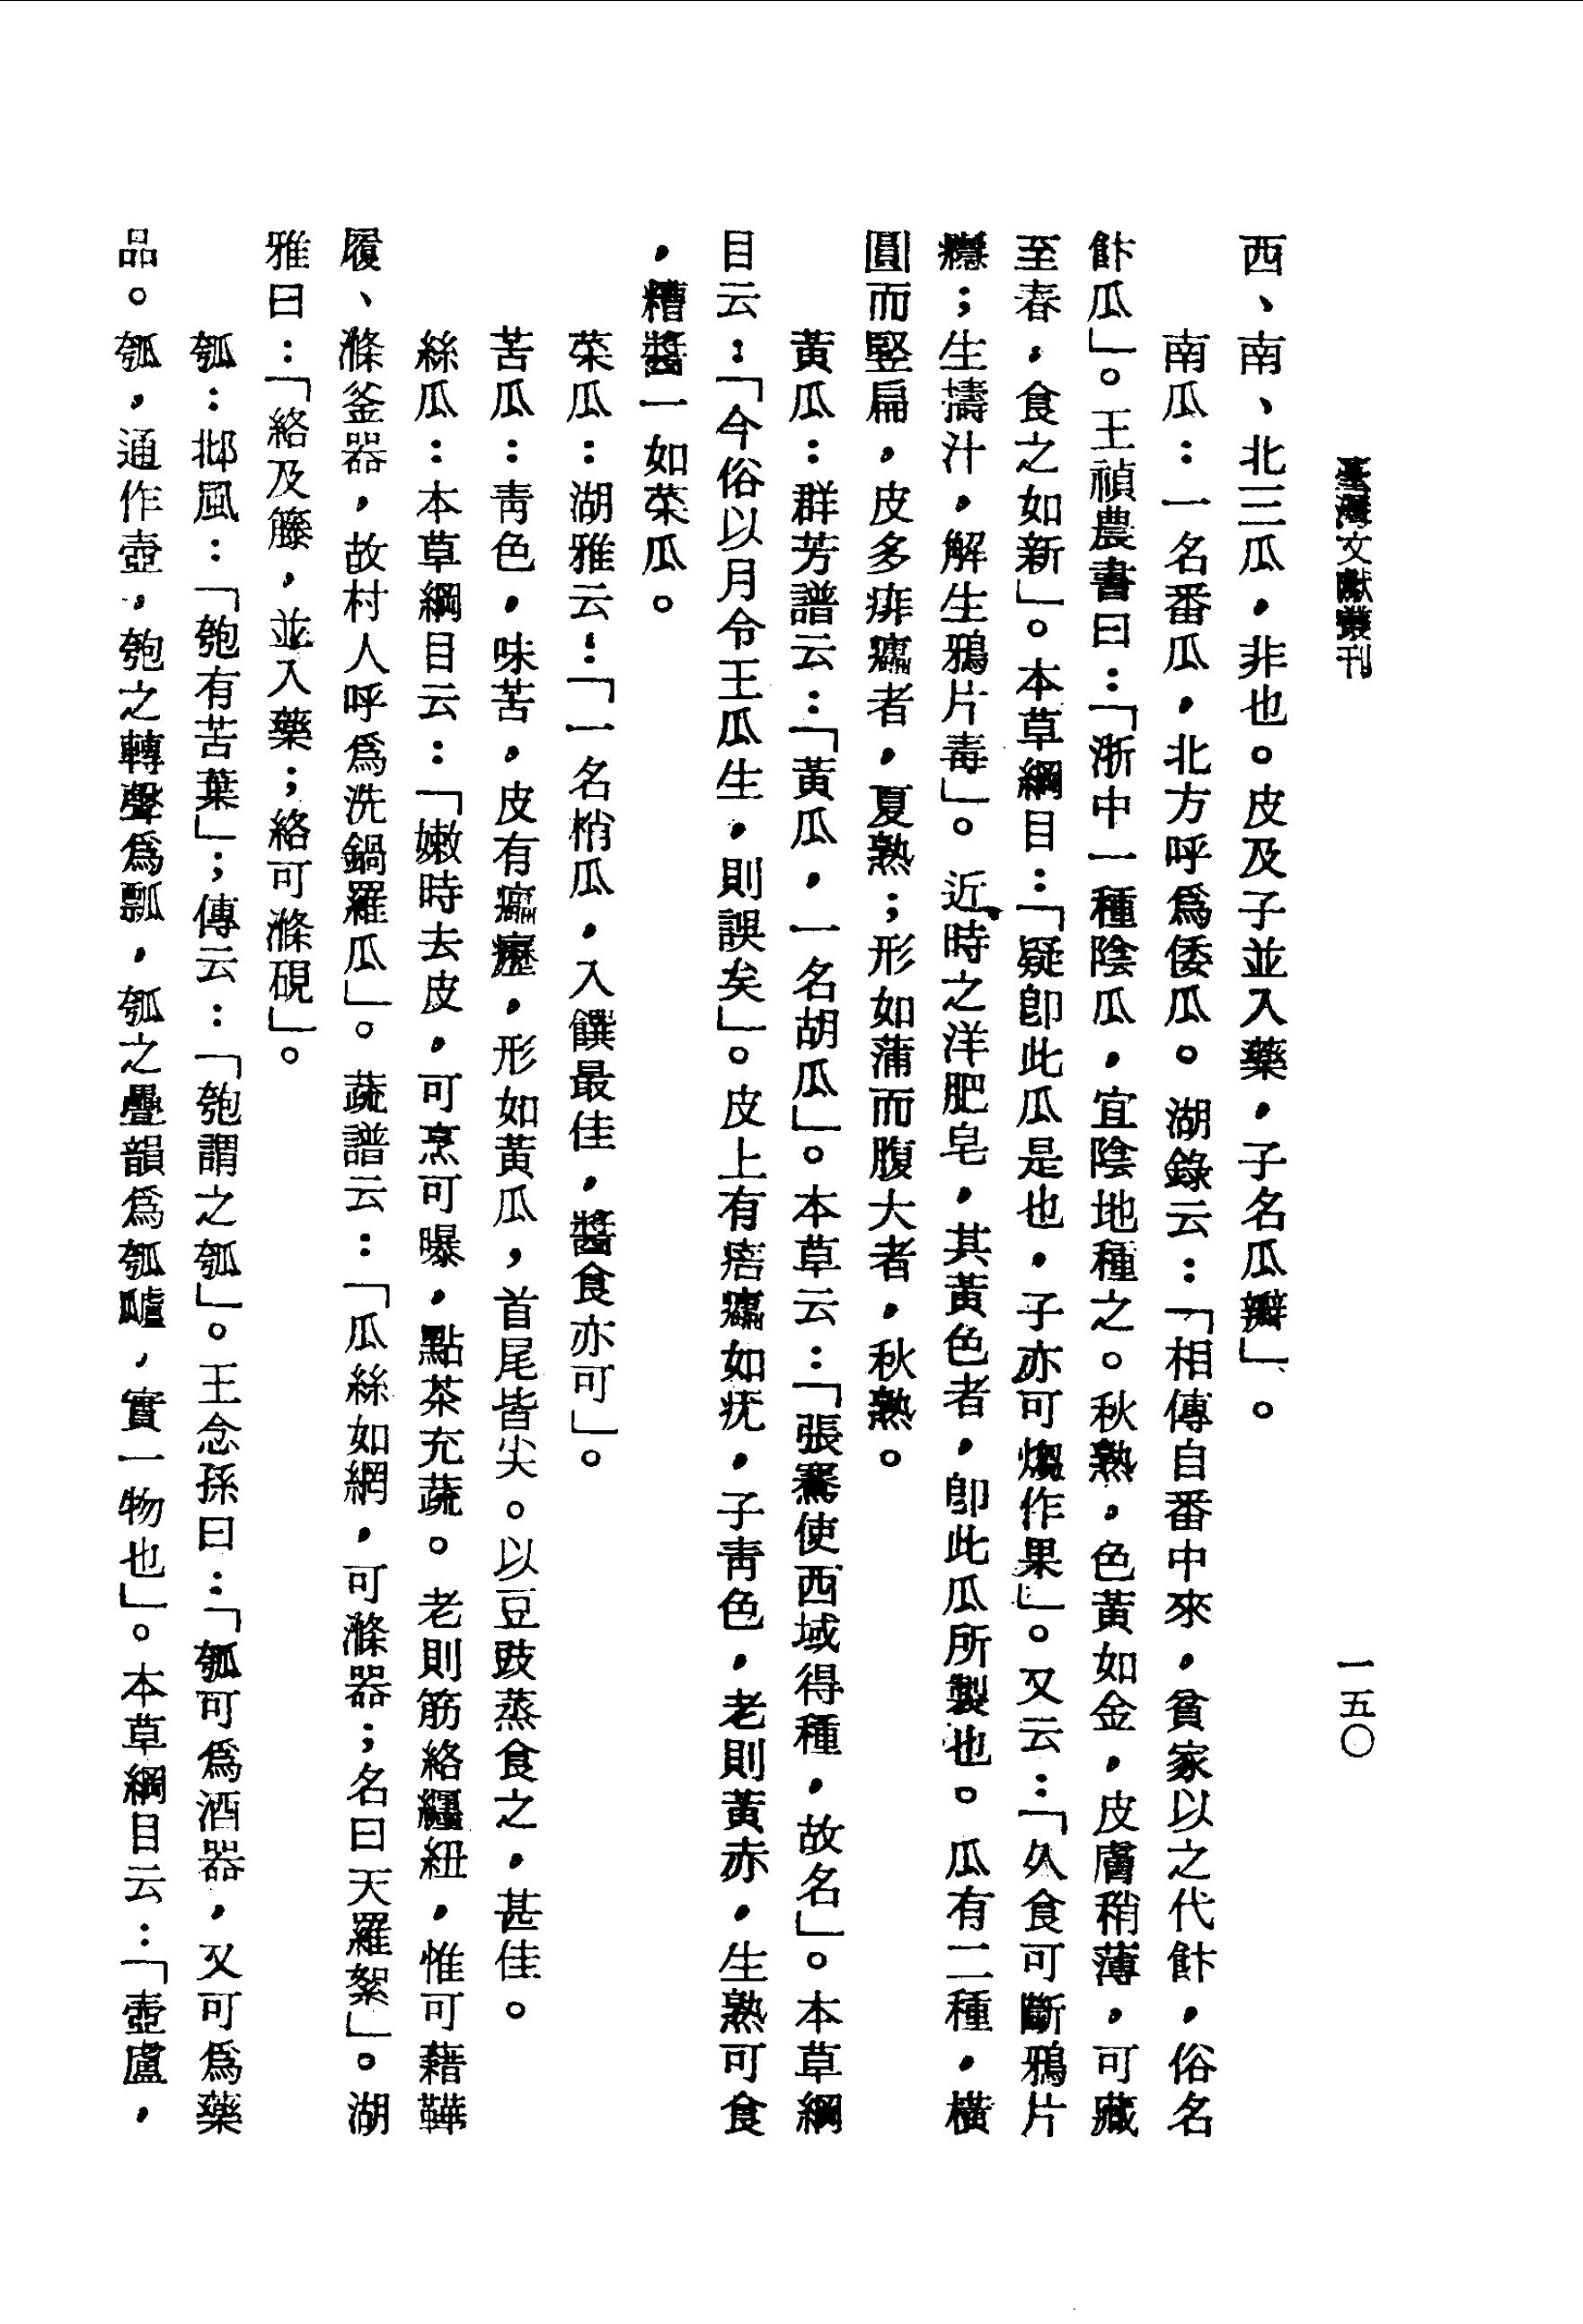 臺灣文獻叢刊
一五〇
西、南、北三瓜，非也。皮及子並入藥，子名瓜瓣」。
南瓜：一名番瓜，北方呼爲倭瓜。湖錄云：「相傳自番中來，貧家以之代飰，俗名
飰瓜」。王禎農書曰：「浙中一種陰瓜，宜陰地種之。秋熟，色黃如金，皮膚稍薄，可藏
至春，食之如新」。本草綱目：「疑卽此瓜是也，子亦可爊作果」。又云：「久食可斷鴉片
癮；生擣汁，解生鴉片毒」。近時之洋肥皂，其黃色者，卽此瓜所製也。瓜有二種，橫
圓而竪扁，皮多痱㿔者，夏熟；形如蒲而腹大者，秋熟。
黃瓜：群芳譜云：「黃瓜，一名胡瓜」。本草云：「張騫使西域得種，故名」。本草綱
目云：「今俗以月令王瓜生，則誤矣」。皮上有㾦㿔如疣，子靑色，老則黃赤，生熟可食
，糟醬一如菜瓜。
菜瓜：湖雅云：「一名梢瓜，入饌最佳，醬食亦可」。
苦瓜：靑色，味苦，皮有㿔癧，形如黃瓜，首尾皆尖。以豆豉蒸食之，甚佳。
絲瓜：本草綱目云：「嫩時去皮，可烹可曝，點茶充蔬。老則筋絡纏紐，惟可藉鞾
履、滌釜器，故村人呼爲洗鍋羅瓜」。蔬譜云：「瓜絲如網，可滌器；名曰天羅絮」。湖
雅曰：「絡及籐，並入藥；絡可滌硯」。
瓠：邶風：「匏有苦葉」；傳云：「匏謂之瓠」。王念孫曰：「瓠可爲酒器，又可爲藥
品。瓠，通作壺，匏之轉聲爲瓢，瓠之疊韻爲瓠㼖，實一物也」。本草綱目云：「壺盧，